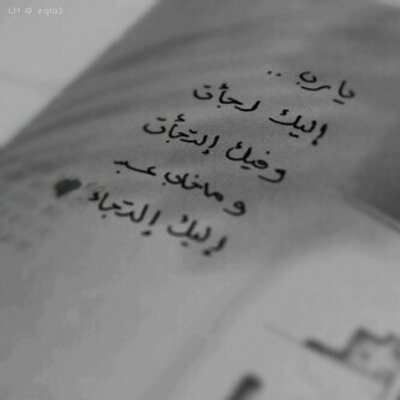 LM @_eqla3
يارب ..
إليك لجأت
وفيك إلتجأت
وماخاب عبد
إليك إلتجاء